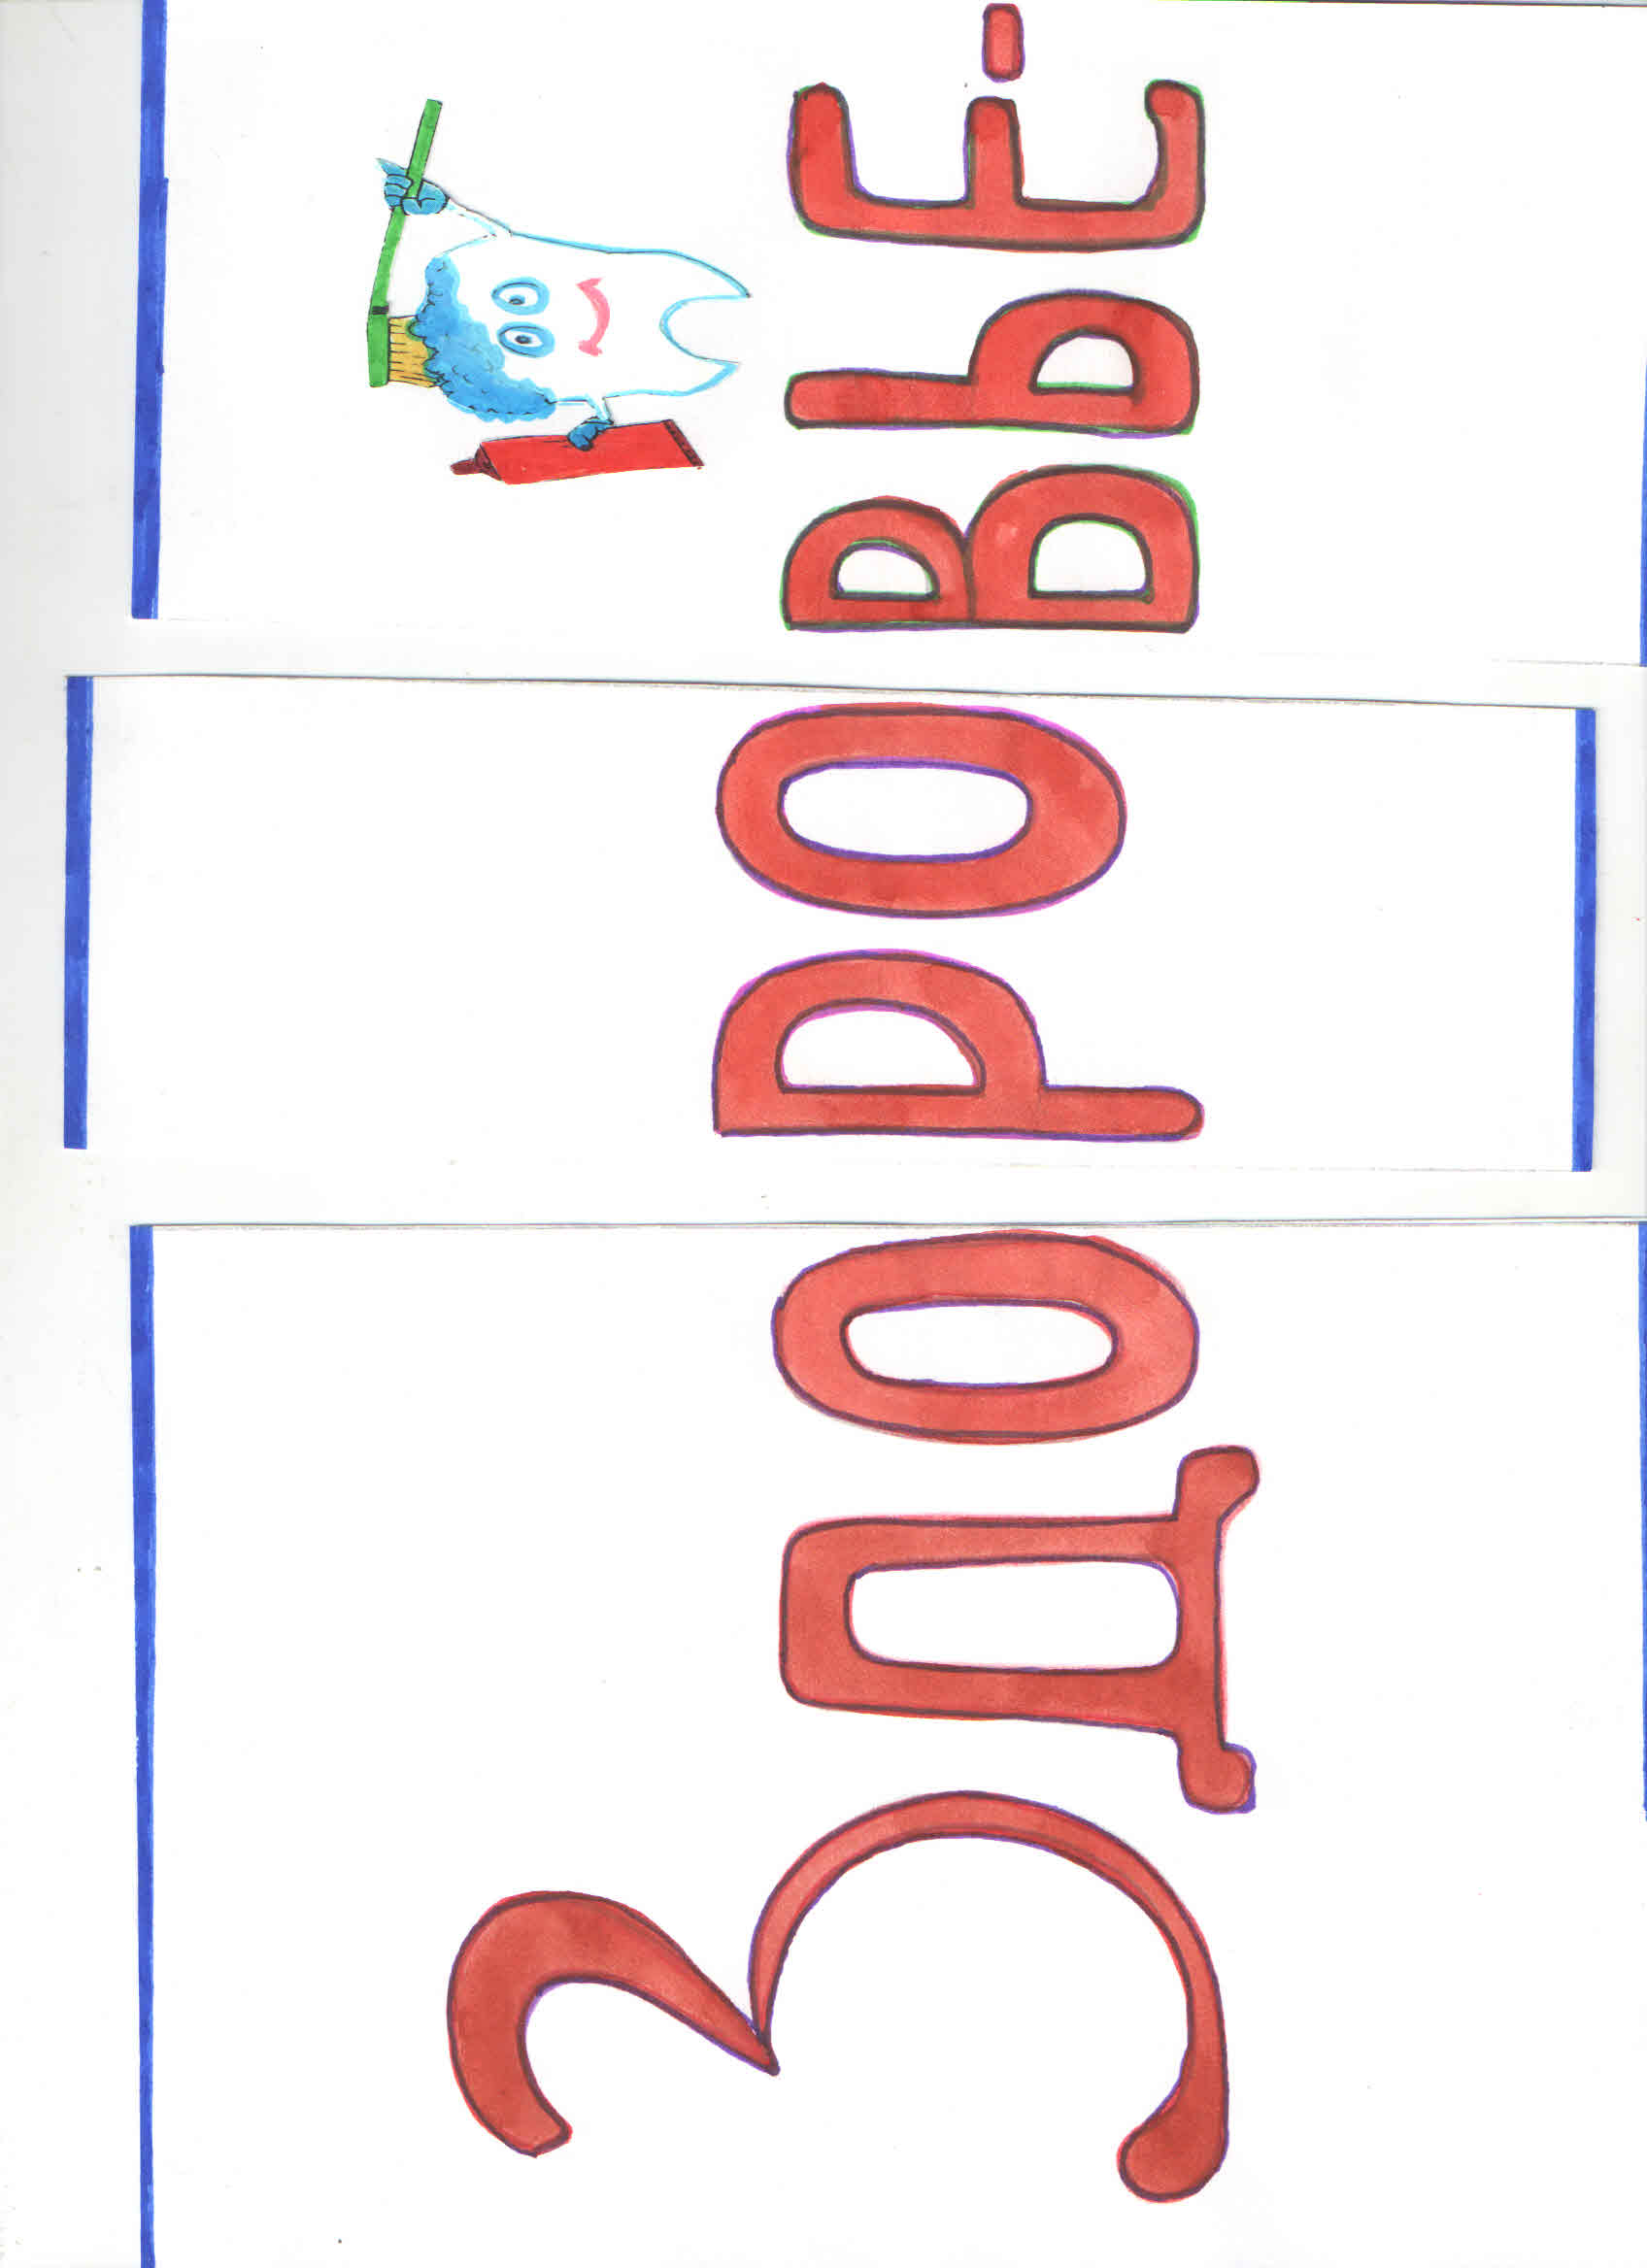 ЗДОРОВЬЕ-